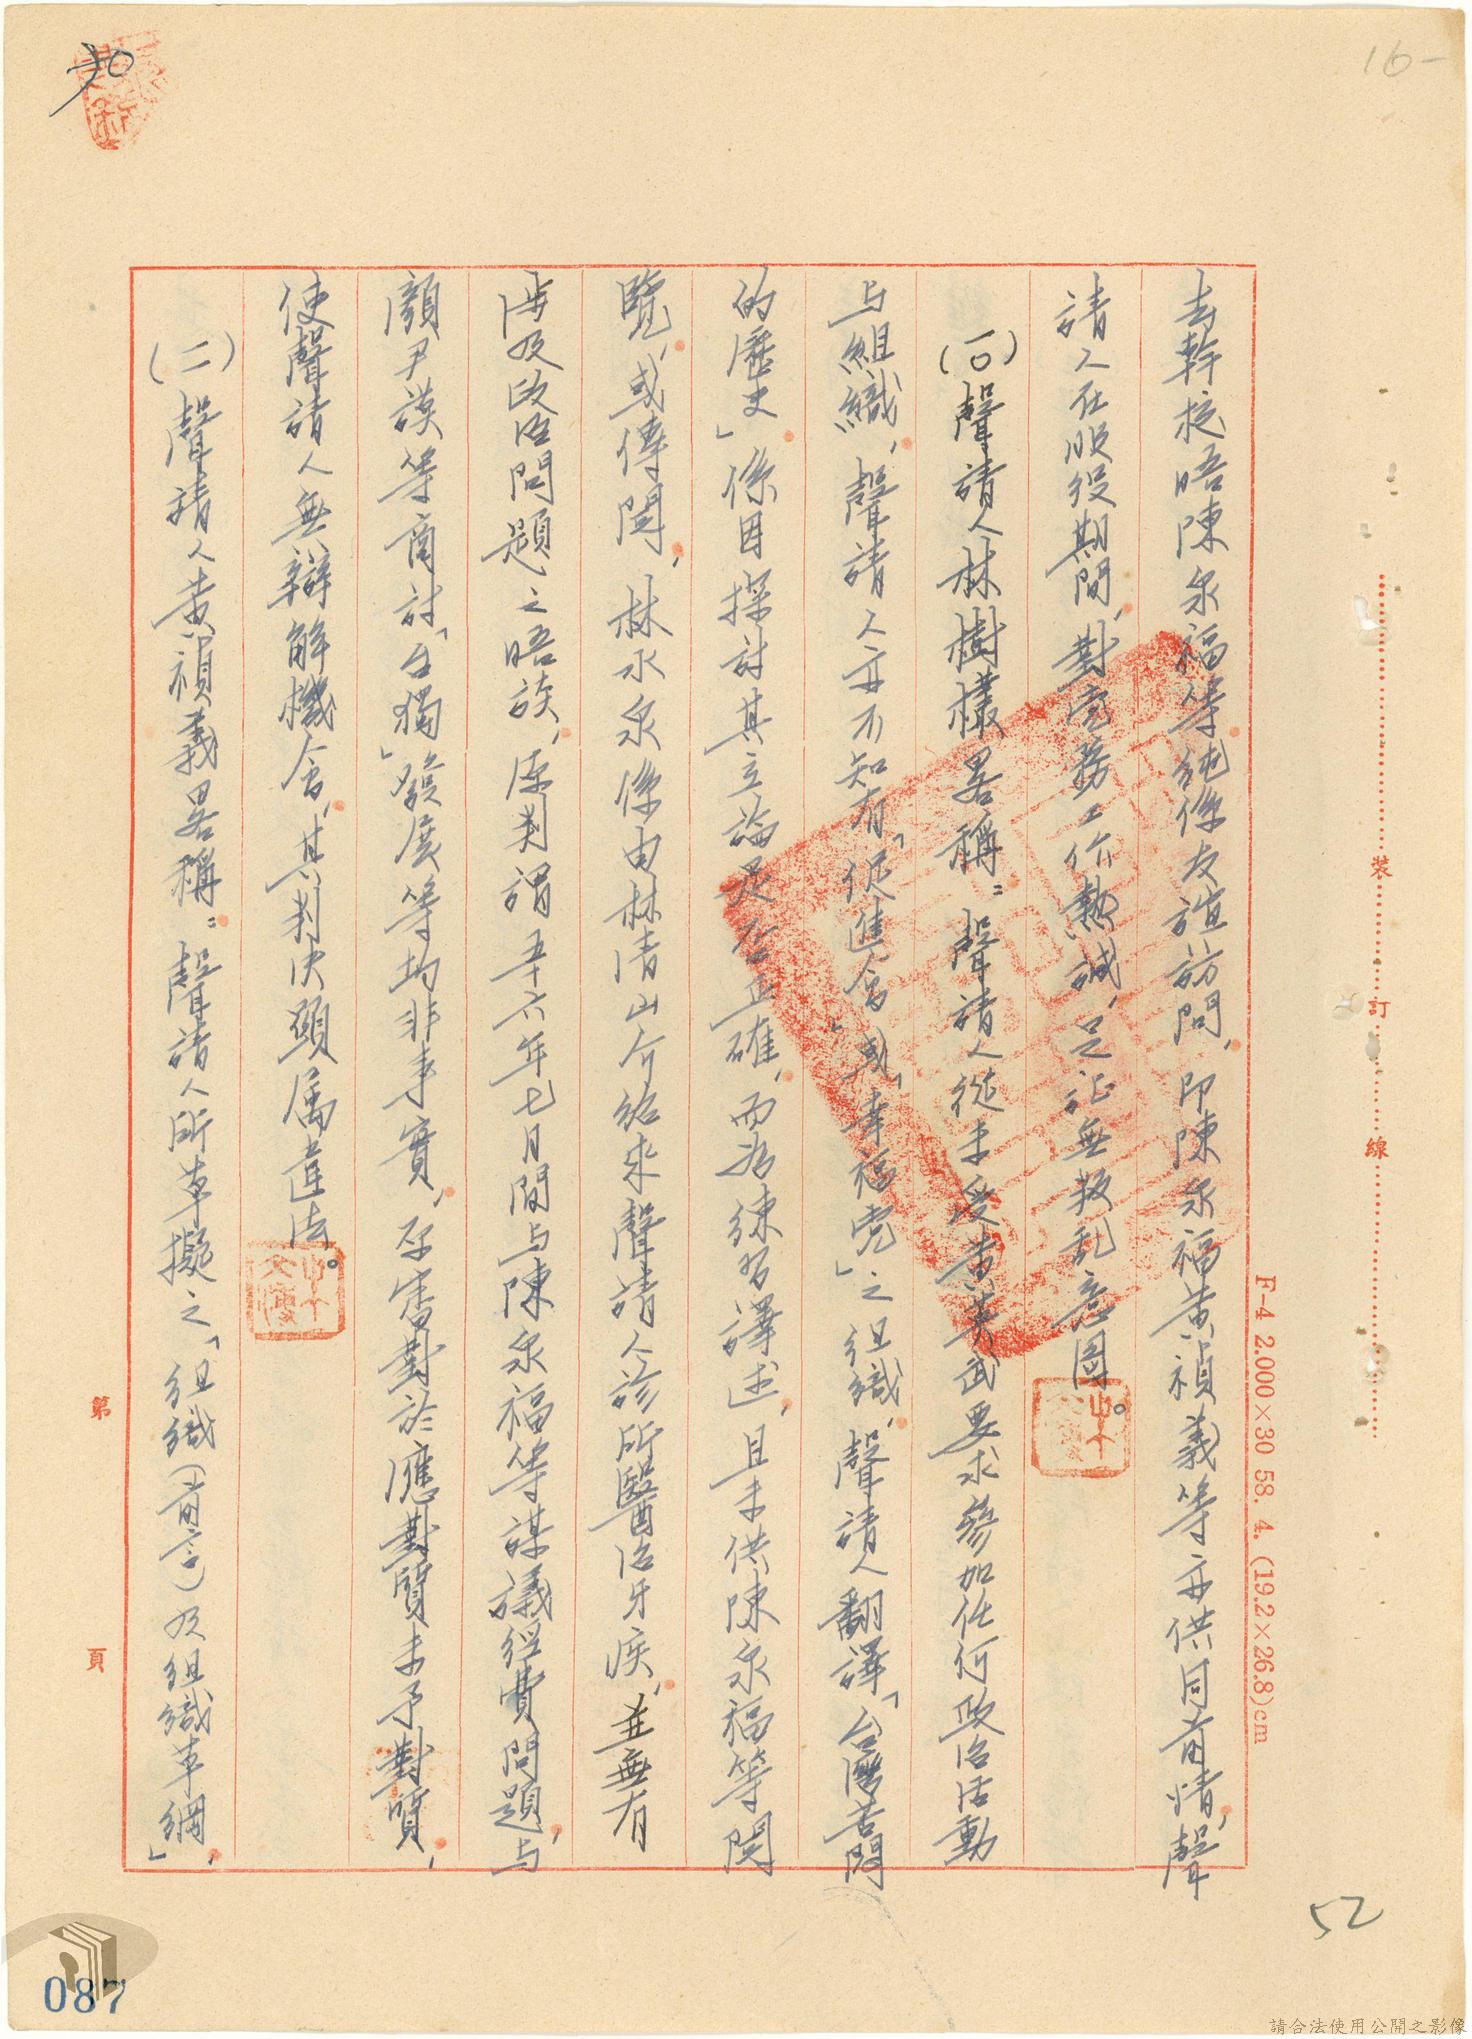 16-
去幹校晤陳永福等純係友誼訪問，即陳永福黃禎義等亦供同前情，聲
請人在服役期間，對党務工作熱誠，足証無叛乱意图。
(一)聲請人林樹欉畧稱：聲請人從未受黃英武要求參加任何政治活動
与組織，聲請人亦不知有「促進會」或「幸福党」之組織，聲請人翻譯「台灣苦悶
的歷史」係因探討其立論是否正確，而為練習譯述，且未供陳永福等閱
覽，或傳閱，林水泉係由林清山介紹來聲請人診所醫治牙疾，並無有
涉及政治問題之晤談，原判謂五十六年七月間与陳永福等謀議經費問題，与
顏尹謨等商討「台獨」發展等均非事實，原審對於應對質未予對質，
使聲請人無辯解機會，其判決顯属違法。
(二)聲請人黃禎義畧稱：聲請人所草擬之「組織(前言)及組織草綱」，
裝
訂
線
F-4 2.000×30 58. 4. (19.2×26.8)cm
第
頁
52
087
請合法使用公開之影像